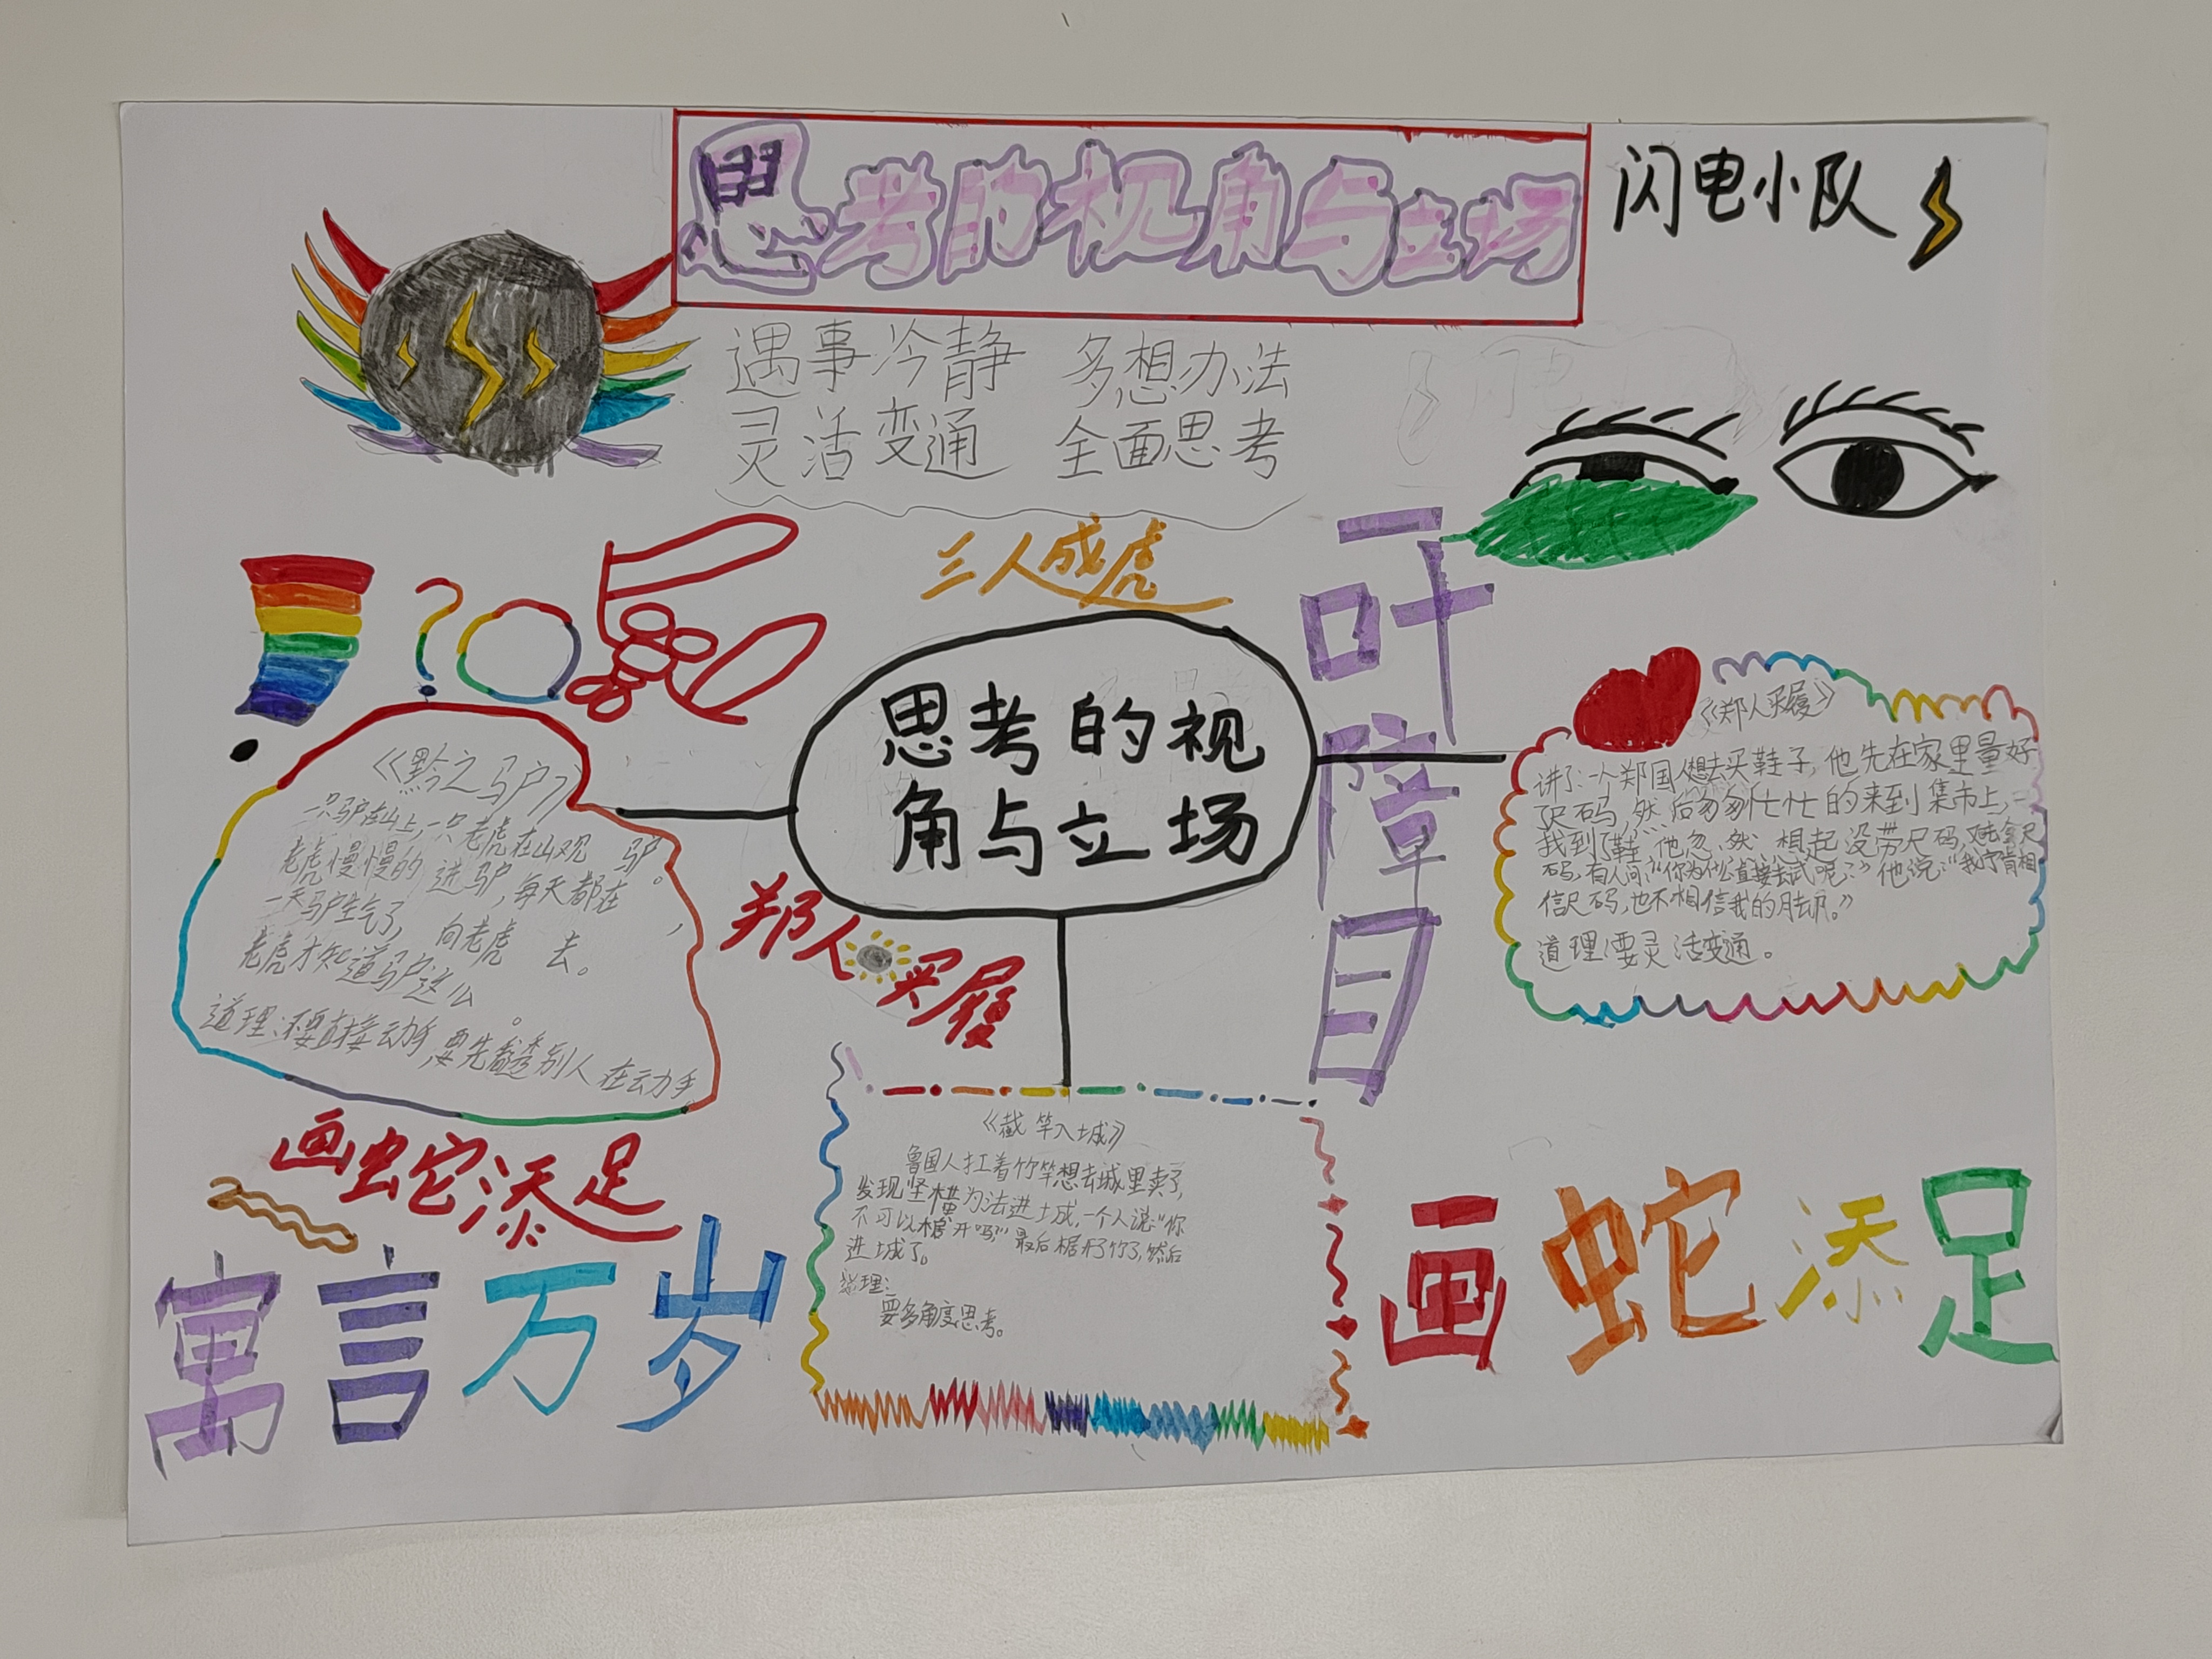 思考的视角与立场
闪电小队
遇事冷静 多想办法
灵活变通 全面思考
三人成虎
一叶障目
思考的视
角与立场
《黔之驴》
一只驴在山上,一只老虎在山观 驴。
老虎慢慢的 进驴,每天都在 ,
一天驴生气了, 向老虎 去。
老虎才知道驴这么 。
道理:不要直接动手,要先看透别人在动手。
郑人买履
《郑人买履》
讲了:一个郑国人想去买鞋子,他先在家里量好
尺码,然后匆匆忙忙的来到集市上,一
找到了鞋,他忽然想起没带尺码,又去拿尺
码,有人问:“你为什么直接去试呢?”他说:“我宁肯相
信尺码,也不相信我的脚。”
道理:要灵活变通。
《截竿入城》
鲁国人扛着竹竿想去城里卖了,
发现竖横为法进城,一个人说:“你
不可以锯开吗,”最后锯开了竹了,然后
进城了。
道理:
要多角度思考。
画蛇添足
寓言万岁
画蛇添足